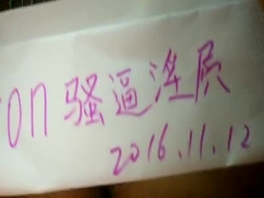 on 骚逼淫民
2016.11.12